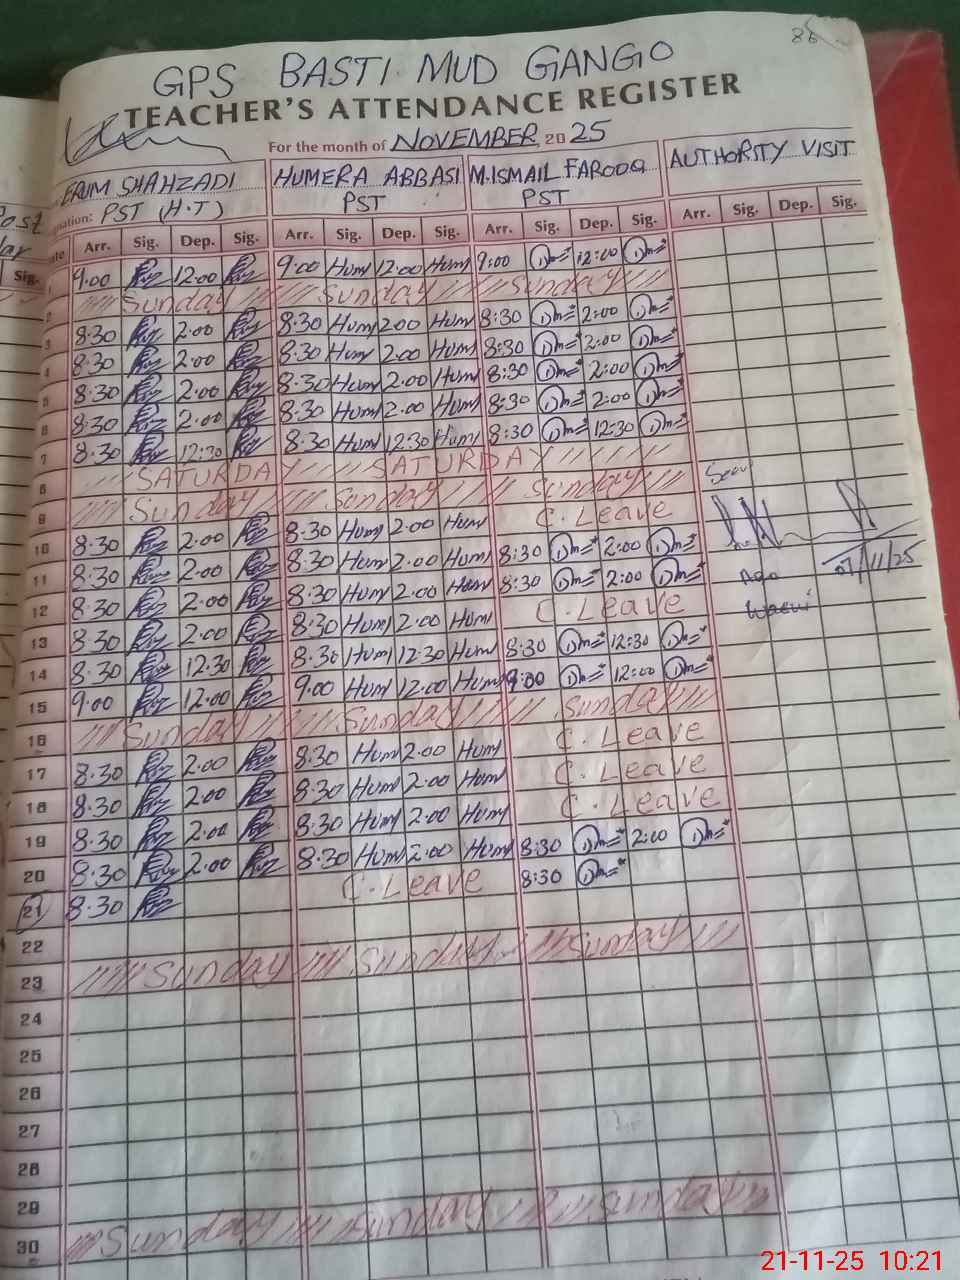 86
GPS BASTI MUD GANGO
TEACHER'S ATTENDANCE REGISTER
For the month of NOVEMBER 2025
ERUM SHAHZADI HUMERA ABBASI M.ISMAIL FAROOQ AUTHORITY VISIT
nation: PST (H.T) PST PST
Arr. Sig. Dep. Sig. Arr. Sig. Dep. Sig. Arr. Sig. Dep. Sig. Arr. Sig. Dep. Sig.
1 9.00 12.00 9.00 Hum 12.00 Hum 9:00 12:00
2 Sunday Sunday Sunday
3 8.30 2.00 8.30 Hum 2.00 Hum 8:30 2:00
4 8.30 2.00 8.30 Hum 2.00 Hum 8:30 2:00
5 8.30 2.00 8.30 Hum 2.00 Hum 8:30 2:00
6 8.30 2.00 8.30 Hum 2.00 Hum 8:30 2:00
7 8.30 12:30 8.30 Hum 12:30 Hum 8:30 12:30
8 SATURDAY SATURDAY
9 Sunday Sunday Sunday
10 8.30 2.00 8.30 Hum 2.00 Hum C. Leave
11 8.30 2.00 8.30 Hum 2.00 Hum 8:30 2:00
12 8.30 2.00 8.30 Hum 2.00 Hum 8:30 2:00 07/11/25
13 8.30 2.00 8.30 Hum 2.00 Hum C. Leave
14 8.30 12.30 8.30 Hum 12.30 Hum 8:30 12:30
15 9.00 12.00 9.00 Hum 12.00 Hum 9:00 12:00
16 Sunday Sunday Sunday
17 8.30 2.00 8.30 Hum 2.00 Hum C. Leave
18 8.30 2.00 8.30 Hum 2.00 Hum C. Leave
19 8.30 2.00 8.30 Hum 2.00 Hum C. Leave
20 8.30 2.00 8.30 Hum 2.00 Hum 8:30 2:00
21 8.30 C. Leave 8:30
22
23 Sunday Sunday Sunday
24
25
26
27
28
29
30 Sunday Sunday Sunday
21-11-25 10:21